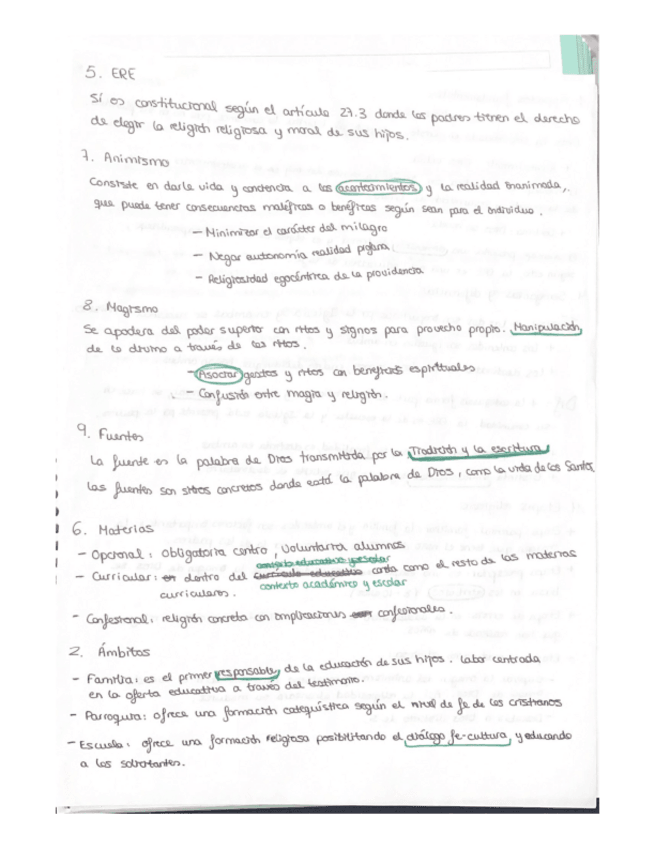 5. ERE
Sí es constitucional según el artículo 27.3 donde los padres tienen el derecho
de elegir la religión religiosa y moral de sus hijos.
7. Animismo
Consiste en darle vida y conciencia a los acontecimientos y la realidad inanimada,
que puede tener consecuencias maléficas o benéficas según sean para el individuo.
- Minimizar el carácter del milagro
- Negar autonomía realidad profana.
- Religiosidad egocéntrica de la providencia
8. Magismo
Se apodera del poder superior con ritos y signos para provecho propio. Manipulación
de lo divino a través de los ritos.
- Asociar gestos y ritos con beneficios espirituales
- Confusión entre magia y religión.
9. Fuentes
La fuente es la palabra de Dios transmitida por la Tradición y la escritura
Las fuentes son sitios concretos donde está la palabra de Dios, como la vida de los Santos
6. Materias
- Opcional: obligatoria centro, voluntaria alumnos
- Curricular: dentro del como el resto de las materias
curriculares. contexto académico y escolar
- Confesional: religión concreta con implicaciones confesionales.
2. Ámbitos
- Familia: es el primer responsable de la educación de sus hijos. labor centrada
en la oferta educativa a través del testimonio.
- Parroquia: ofrece una formación catequística según el nivel de fe de los cristianos
- Escuela: ofrece una formación religiosa posibilitando el diálogo fe-cultura, y educando
a los